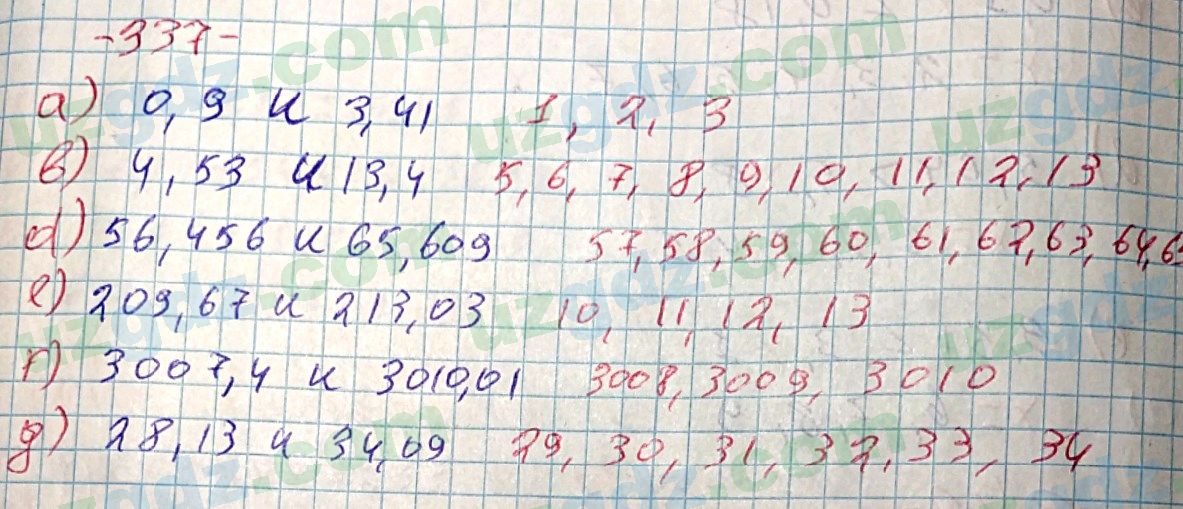 -337-
а) 0,9 и 3,41 1, 2, 3
в) 4,53 и 13,4 5, 6, 7, 8, 9, 10, 11, 12, 13
d) 56,456 и 65,609 57, 58, 59, 60, 61, 62, 63, 64, 65
е) 209,67 и 213,03 10, 11, 12, 13
г) 3007,4 и 3010,01 3008, 3009, 3010
g) 28,13 и 34,09 29, 30, 31, 32, 33, 34
uzgdz.com